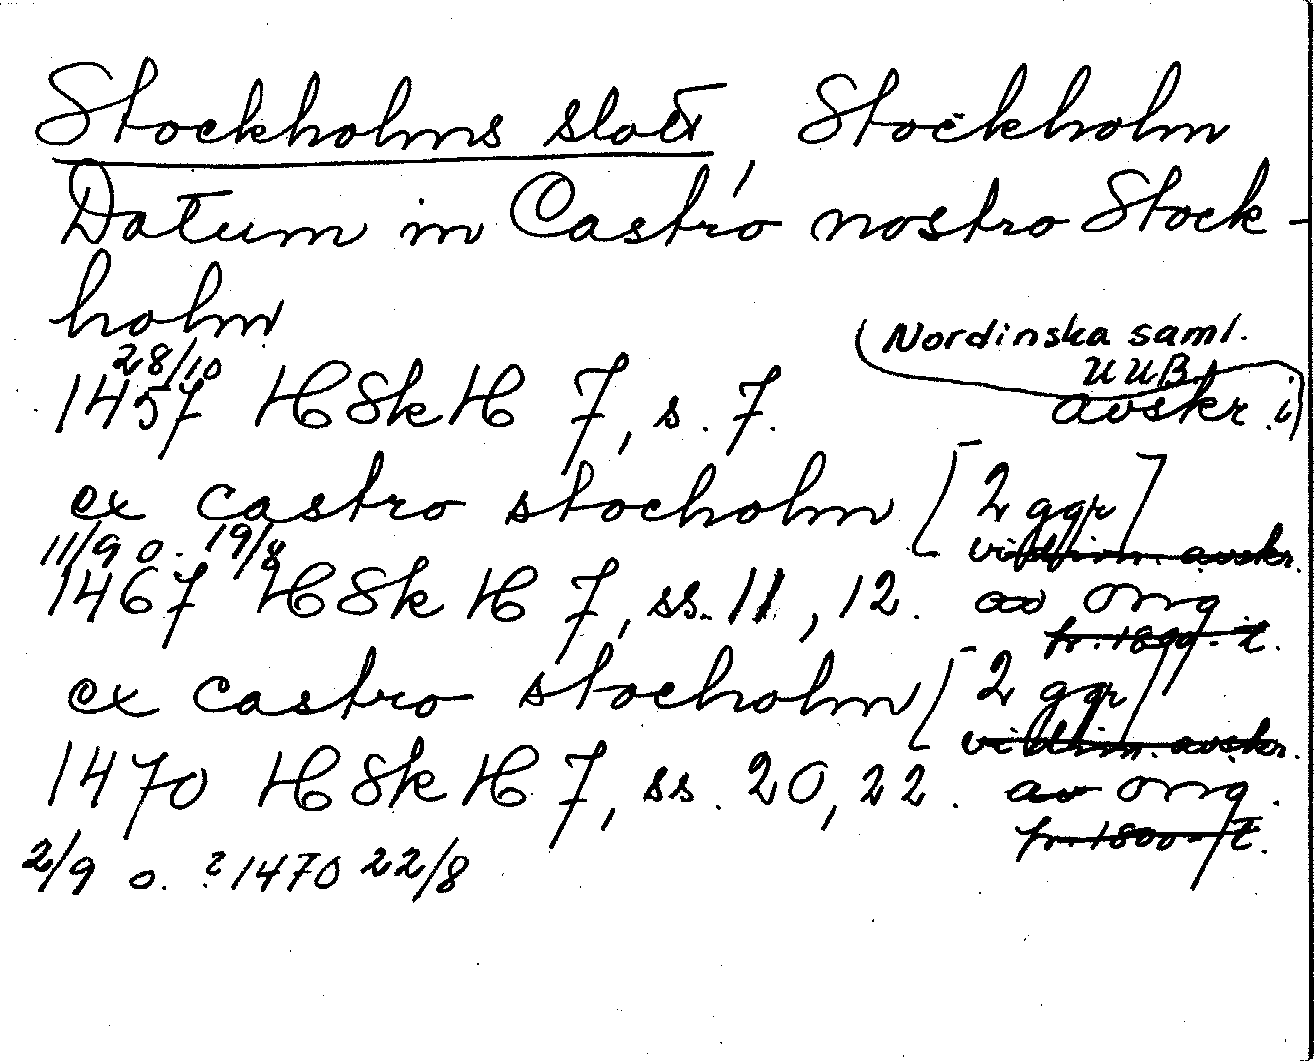 Stockholms slott, Stockholm
Datum in Castro nostro Stock-
holm
(Nordinska saml.
UUB)
28/10
1457 HSkH 7, s. 7. avskr. i)
ex castro stocholm [2 ggr]
11/9 o. 19/8 vidim. avskr.
1467 HSkH 7, ss. 11, 12. av orig.
fr. 1800-t.
ex castro stocholm [2 ggr]
vidim. avskr.
1470 HSkH 7, ss. 20, 22. av orig.
fr. 1800-t.
2/9 o. ?1470 22/8